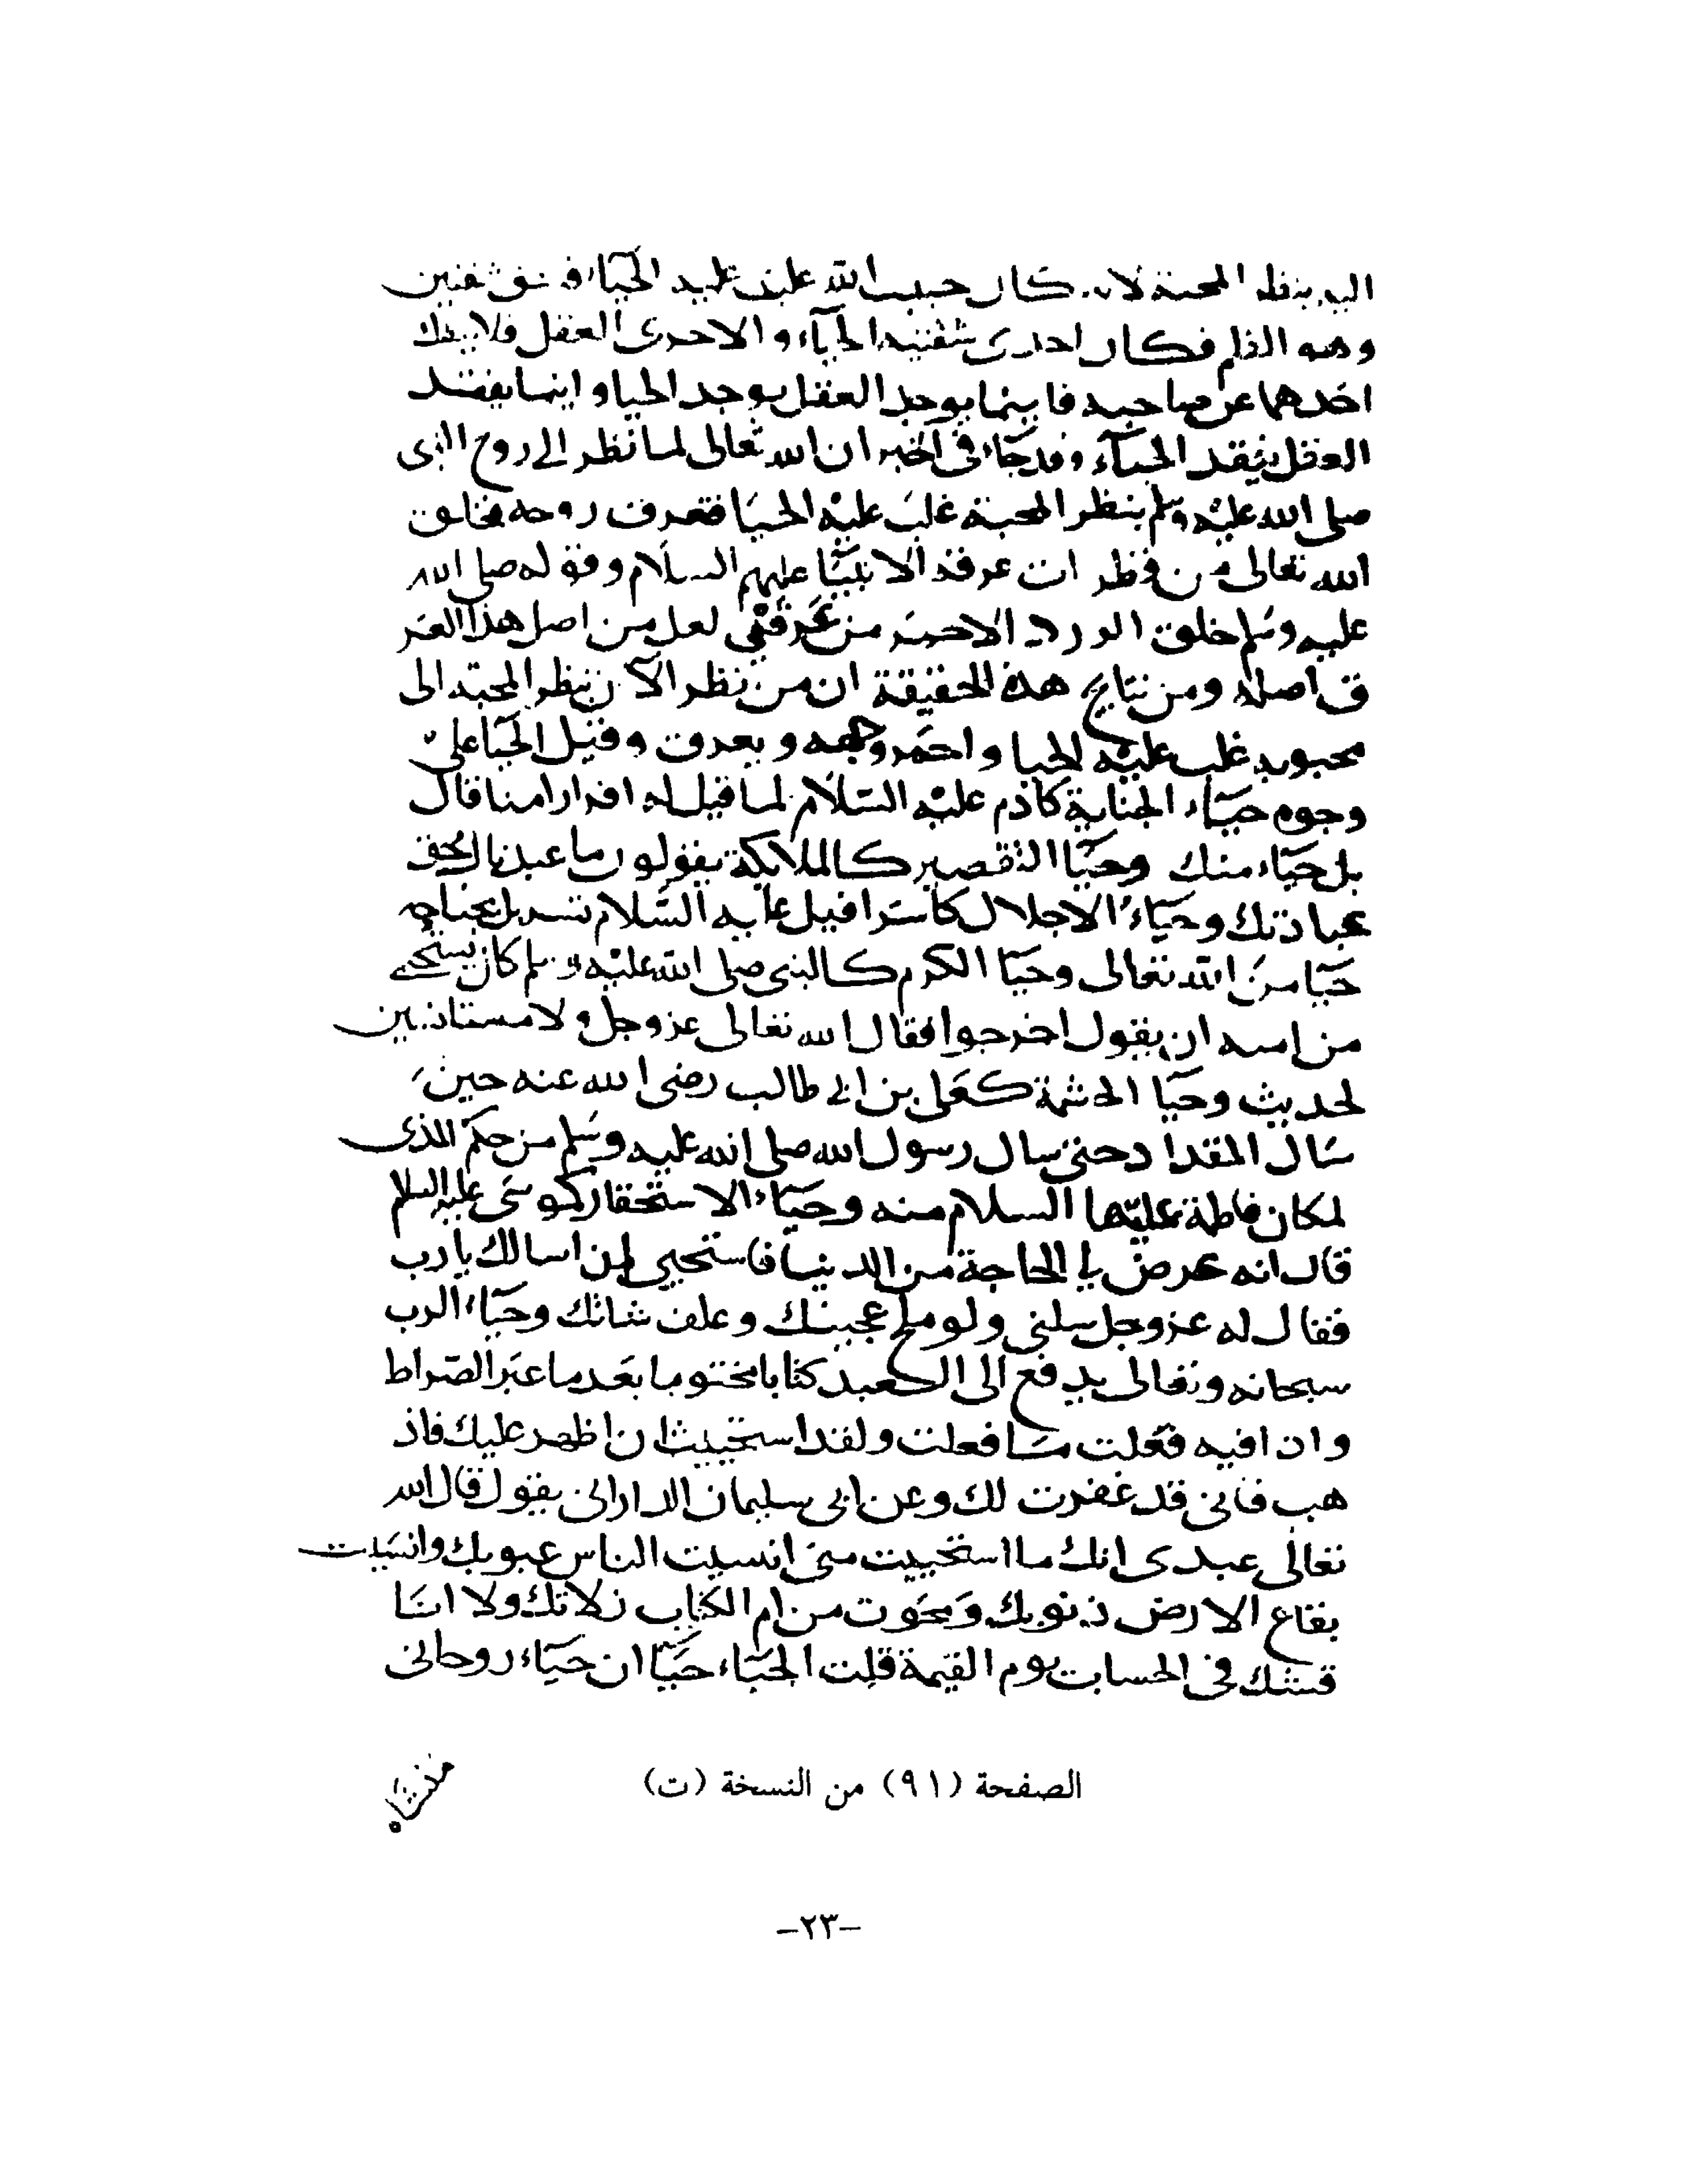 اليه بنظر المحبة لانه كان حبيب الله غلب عليه الحياء فشق شقين
وهو القلم فكان احدى شقتيه الحياء والاخرى العقل فلا ينفك
احدهما عن صاحبه فاينما يوجد العقل يوجد الحيا واينما يفقد
العقل يفقد الحياء وقد جاء فى الخبر ان الله تعالى لما نظر الى روح النبى
صلى الله عليه وسلم بنظر المحبة غلب عليه الحيا فتعرق روحه فخلق
الله تعالى من قطرات عرقه الانبيا عليهم السلام وقوله صلى الله
عليه وسلم خلق الورد الاحمر من عرقى لعل من اصل هذا العر
ق اصله ومن نتايج هذه الحقيقة ان من نظر الآن بنظر المحبة الى
محبوبه غلب عليه الحيا واحمر وجهه ويعرق وقيل الحيا على
وجوه حياء الجناية كآدم عليه السلام لما قيل له افرارا منا قال
بل حياء منك وحيا التقصير كالملائكة يقولون ما عبدناك حق
عبادتك وحياء الاجلال كاسرافيل عليه السلام تسربل بجناحه
حيا من الله تعالى وحيا الكرم كالنبى صلى الله عليه وسلم كان يستحى
من امته ان يقول اخرجوا فقال الله تعالى عز وجل ولا مستانسين
لحديث وحيا الحشمة كعلى بن ابى طالب رضى الله عنه حين
سال المقداد حتى سال رسول الله صلى الله عليه وسلم من حكم المذى
لمكان فاطمة عليها السلام منه وحياء الاستحقار كموسى عليه السلام
قال انه عرض لى الحاجة من الدنيا فاستحيى ان اسالك يا رب
فقال له عز وجل سلنى ولو ملح عجينك وعلف شاتك وحياء الرب
سبحانه وتعالى يدفع الى العبد كتابا مختوما بعد ما عبر الصراط
واذا فيه فعلت ما فعلت ولقد استحييت ان اظهر عليك فاذ
هب فانى قد غفرت لك وعن ابى سليمان الدارانى يقول قال الله
تعالى عبدى انك ما استحييت منى انسيت الناس عيوبك وانسيت
بقاع الارض ذنوبك ومحوت من ام الكتاب زلاتك ولا انا
قشك فى الحساب يوم القيمة قلت الحياء حيا ان حياء روحانى
الصفحة (٩١) من النسخة (ت)
-٢٣-